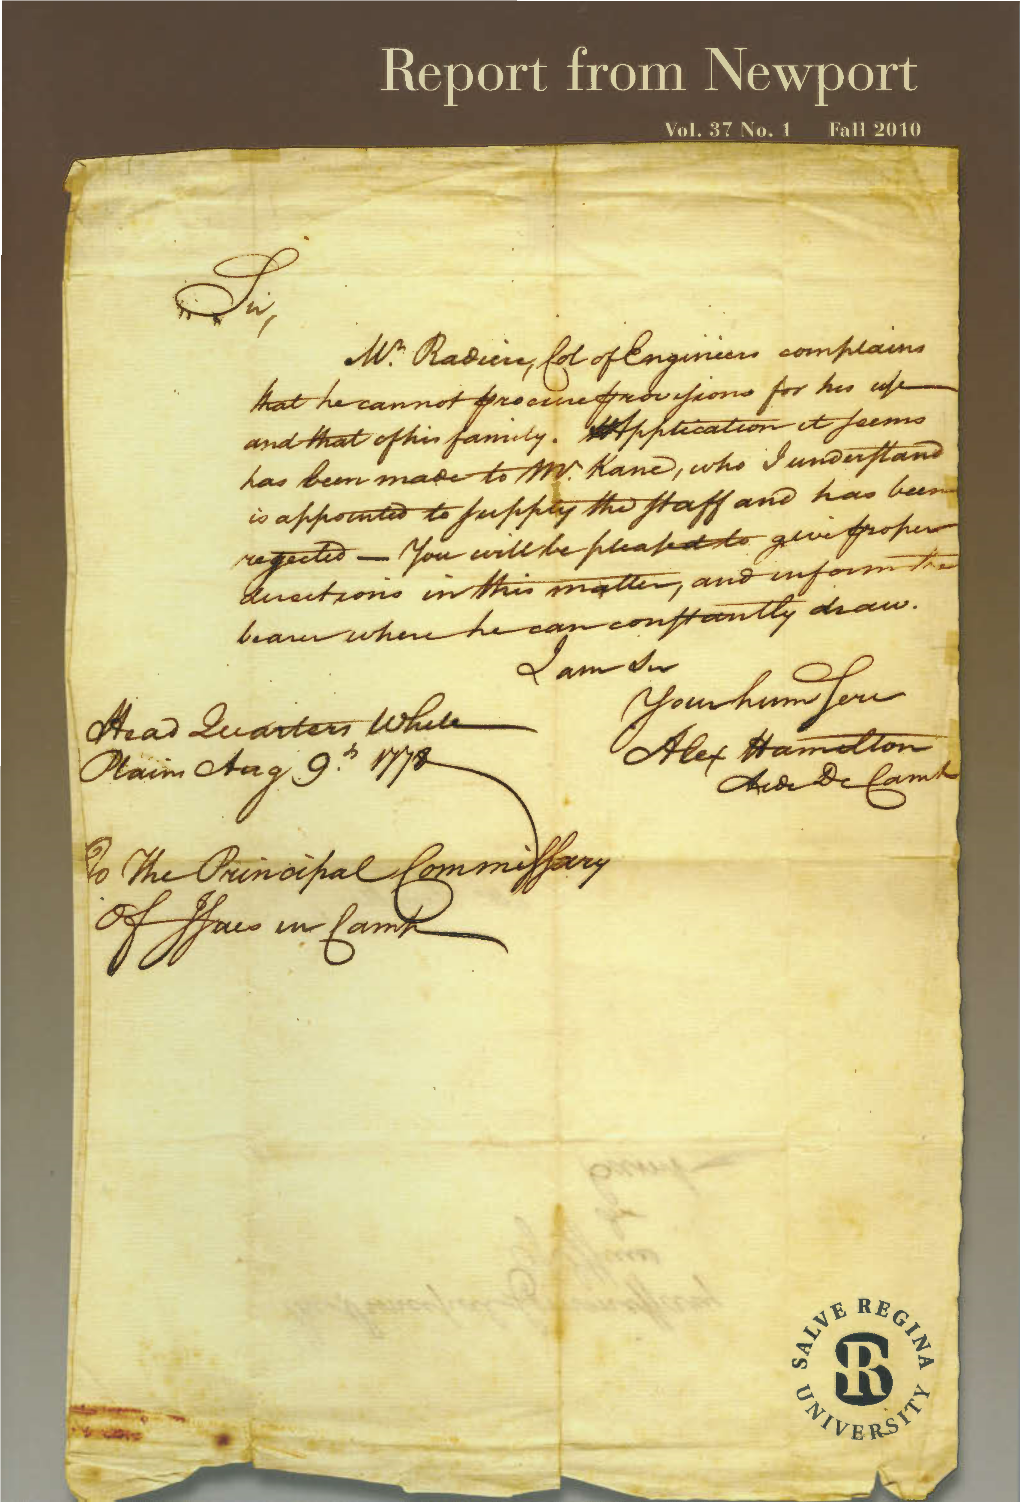 Report from Newport
Vol. 37 No. 1 Fall 2010
Sir,
Mr. Radiere, Col of Engineers complains
that he cannot procure provisions for his use
and that of his family. Application it seems
has been made to Mr. Kane, who I understand
is appointed to supply the staff and has been
rejected — You will be pleased to give proper
directions in this matter, and inform the
bearer where he can constantly draw.
I am Sir
Your hum Serv
Alex Hamilton
Aide De Camp
Head Quarters White
Plains Aug 9th 1778
To The Principal Commissary
Of Issues in Camp
SALVE REGINA
UNIVERSITY
SR